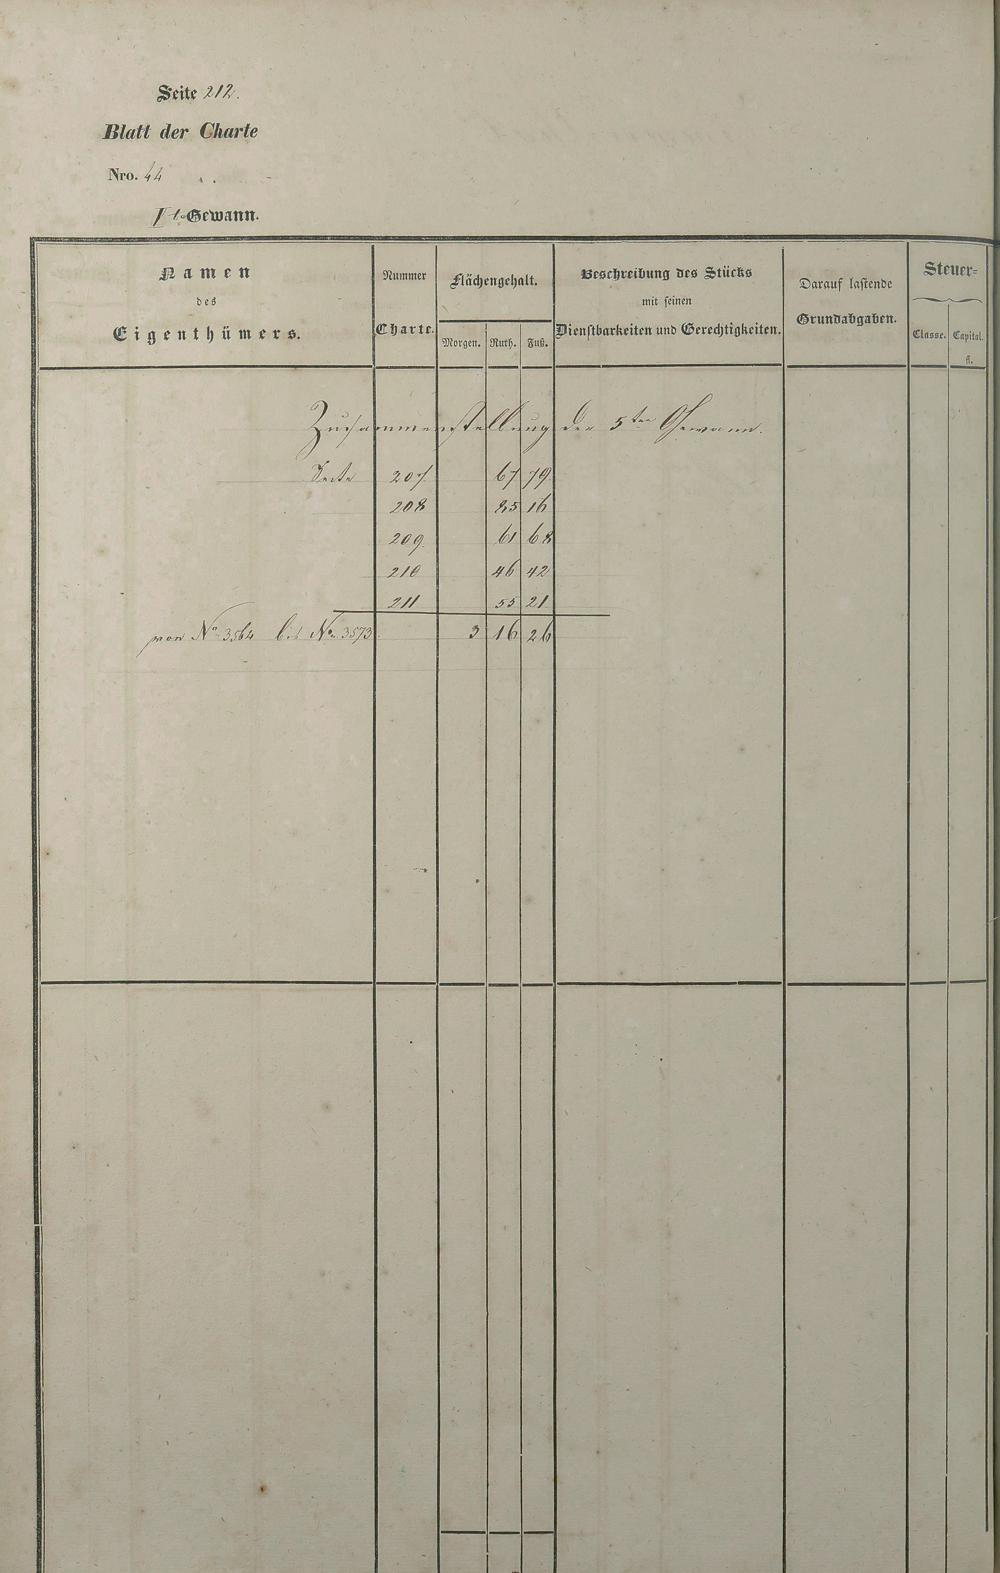 Seite 212.
Blatt der Charte
Nro. 44
Gewann.
Namen
des
Eigenthümers.
Nummer
Charte.
Flächengehalt.
Morgen. Ruth. Fuß.
Beschreibung des Stücks
mit seinen
Dienstbarkeiten und Gerechtigkeiten.
Darauf lastende
Grundabgaben.
Steuer-
Classe. Capital.
fl.
Zusammenstellung der 5ten Gewann.
Seite 207 67 79
208 85 16
209 61 68
210 46 42
211 55 21
von No 3564 bis No 3573 3 16 26